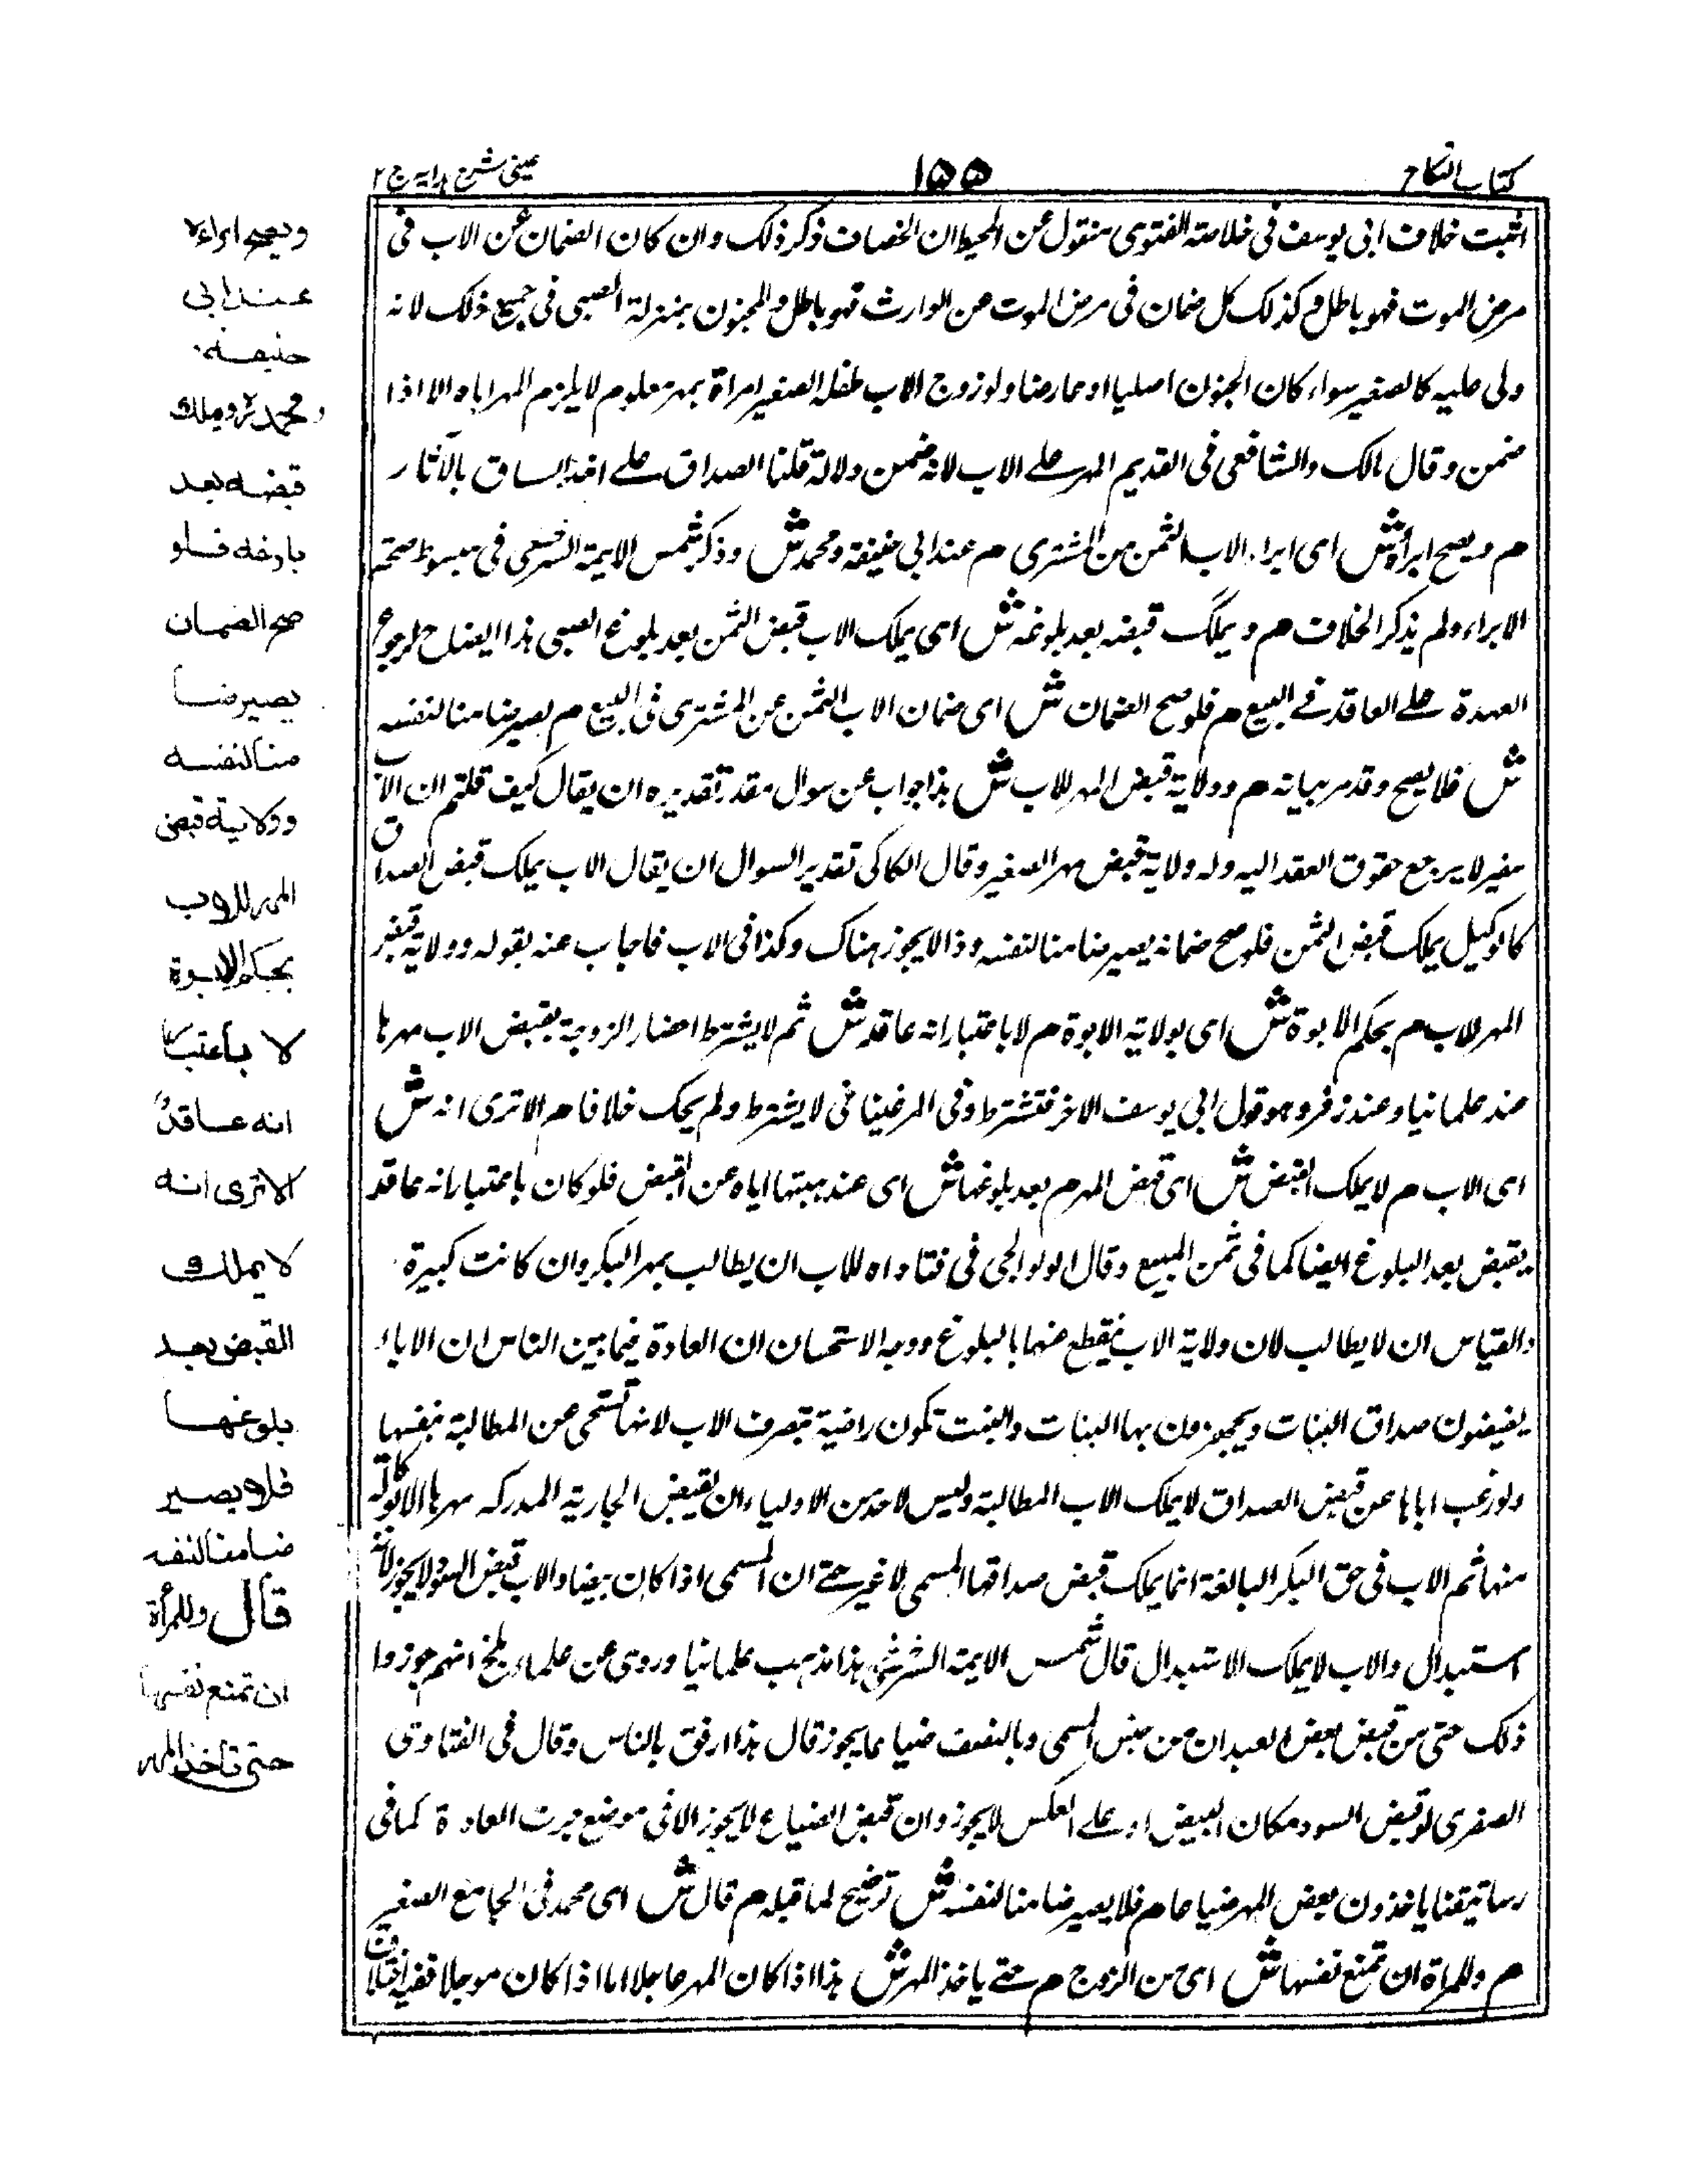 كتاب النكاح
١٥٥
عينى شرح هدايه ج ٢
اثبت خلاف ابى يوسف فى خلاصة الفتوى منقول عن المحيط ان الخصاف ذكر ذلك وان كان الضمان عن الاب فى
مرض الموت فهو باطل وكذلك كل ضمان فى مرض الموت عن الوارث فهو باطل والمجنون بمنزلة الصبى فى جميع ذلك لانه
ولى عليه كالصغير سواء كان الجنون اصليا او عارضا ولو زوج الاب طفله الصغير امراة بمهر معلوم لا يلزم المهر اباه الا اذا
ضمن وقال مالك والشافعى فى القديم المهر على الاب لانه ضمن دلالة قلنا الصداق على اخذ الساق بالآثار
م ويصح ابراؤه ش اى ابراء الاب الثمن من المشترى م عند ابى حنيفة ومحمد ش وذكر شمس الايمة السرخسى فى مبسوط صحة
الابراء ولم يذكر الخلاف م ويملك قبضه بعد بلوغه ش اى يملك الاب قبض الثمن بعد بلوغ الصبى هذا ايضاح لرجوع
العهدة على العاقد فى البيع م فلو صح الضمان ش اى ضمان الاب الثمن عن المشترى فى البيع م يصير ضامنا لنفسه
ش فلا يصح وقد مر بيانه م وولاية قبض المهر للاب ش هذا جواب عن سوال مقدر تقديره ان يقال كيف قلتم ان الاب
سفير لا يرجع حقوق العقد اليه وله ولاية قبض مهر الصغير وقال الكاكى تقدير السوال ان يقال الاب يملك قبض الصداق
كالوكيل يملك قبض الثمن فلو صح ضمانه يصير ضامنا لنفسه وذا لا يجوز هناك وكذا فى الاب فاجاب عنه بقوله وولاية قبض
المهر للاب م بحكم الابوة ش اى بولاية الابوة م لا باعتبار انه عاقد ش ثم لا يشترط احضار الزوجة بقبض الاب مهرها
عند علمائنا وعند زفر وهو قول ابى يوسف الاخر فتشترط وفى المرغينانى لا يشترط ولم يحك خلافا م الا ترى انه ش
اى الاب م لا يملك القبض ش اى قبض المهر م بعد بلوغها ش اى عند هبتها اياه عن القبض فلو كان باعتبار انه عاقد
يقبض بعد البلوغ ايضا كما فى ثمن المبيع وقال الولوالجى فى فتاواه للاب ان يطالب بمهر البكر وان كانت كبيرة
والقياس ان لا يطالب لان ولاية الاب ينقطع عنها بالبلوغ ووجه الاستحسان ان العادة فيما بين الناس ان الاباء
يقبضون صداق البنات ويجهزون بها البنات والبنت تكون راضية بتصرف الاب لانها تستحى عن المطالبة بنفسها
ولو رغب اباها عن قبض الصداق لا يملك الاب المطالبة وليس لاحد من الاولياء ان يقبض الجارية المدركه مهرها الا بوكالة
منها ثم الاب فى حق البكر البالغة انما يملك قبض صداقها المسمى لا غير حتى ان المسمى اذا كان بيضا والاب قبض السود لا يجوز لانه
استبدال والاب لا يملك الاستبدال قال شمس الايمة السرخسى هذا مذهب علمائنا وروى عن علماء بلخ انهم جوزوا
ذلك حتى من قبض بعض العبدان من جنس المسمى وبالنصف ضياعا يجوز قال هذا ارفق بالناس وقال فى الفتاوى
الصغرى لو قبض السود مكان البيض او على العكس لا يجوز وان قبض الضياع لا يجوز الا فى موضع جرت العادة كما فى
رساتيقنا ياخذون ببعض المهر ضياعا م فلا يصير ضامنا لنفسه ش توضيح لما قبله م قال ش اى محمد فى الجامع الصغير
م وللمراة ان تمنع نفسها ش اى من الزوج م حتى ياخذ المهر ش هذا اذا كان المهر عاجلا اما اذا كان موجلا ففيه اختلاف
ويصح ابراءه
عند ابى
حنيفة
ومحمد ويملك
قبضه بعد
بلوغه فلو
صح الضمان
يصير ضا
منا لنفسه
وولاية قبض
المهر للاب
بحكم الابوة
لا باعتبار
انه عاقد
الا ترى انه
لا يملك
القبض بعد
بلوغها
فلا يصير
ضامنا لنفسه
قال وللمرأة
ان تمنع نفسها
حتى تأخذ المهر